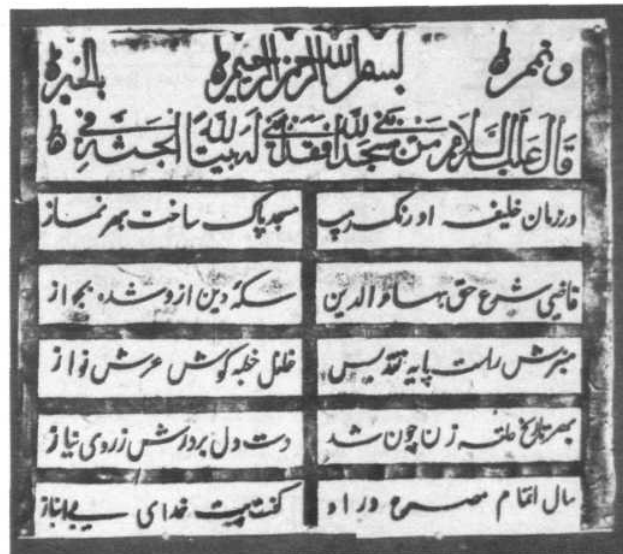 وتمم بسم الله الرحمن الرحيم بالخير
قال عليه السلام من بنى مسجدا لله فقد بنى الله له بيتا في الجنة
در زمان خلیفه اورنک زیب مسجد پاک ساخت بهر نماز
قاضی شرع حق بهاو الدین سکهٔ دین ازو شده بجواز
منبرش راست پایه تقدیس غلغل خطبه کوش عرش نواز
بهر تاریخ حلقه زن چون شد دست دل بر درش ز روی نیاز
سال اتمام مصرع در او کفت بیت خدای بی انباز